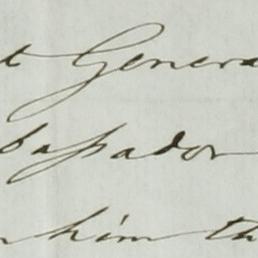 t Genera
bassador
him th